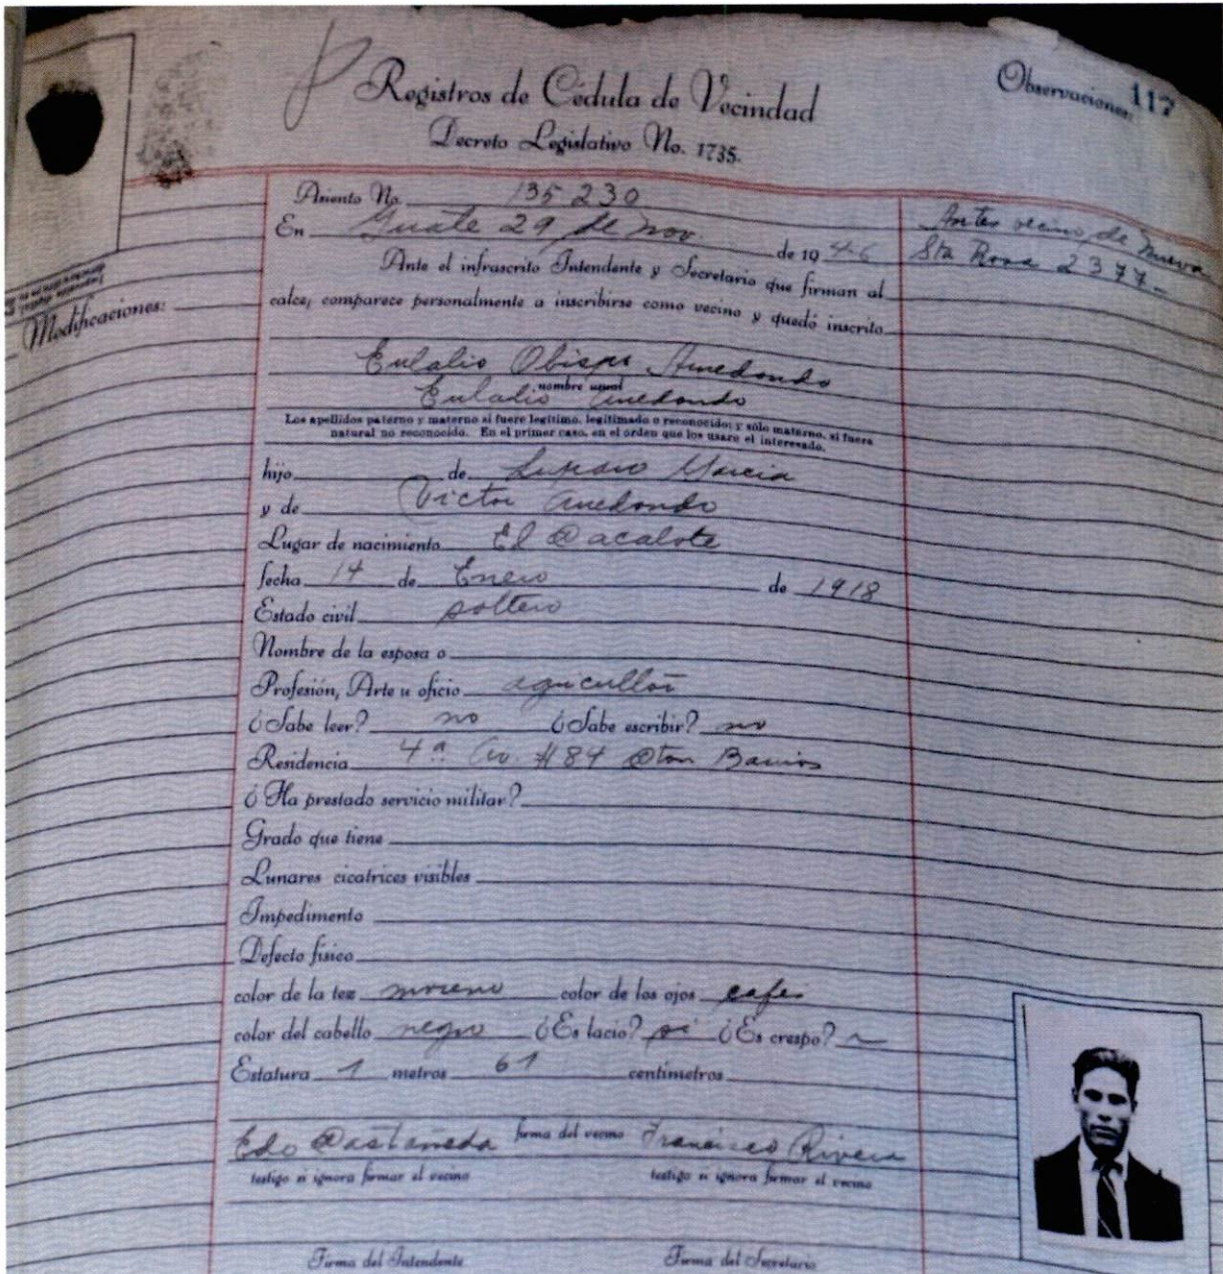 Registros de Cédula de Vecindad
Decreto Legislativo No. 1735.
Observaciones: 117
Asiento No. 135230
En Guate 29 de nov. de 1946
Antes vecino de Nueva
Sta Rosa 2377-
Ante el infrascrito Intendente y Secretario que firman al
calce; comparece personalmente a inscribirse como vecino y quedó inscrito
Modificaciones:
Eulalio Obispo Arredondo
nombre usual
Eulalio Arredondo
Los apellidos paterno y materno si fuere legítimo, legitimado o reconocido; y sólo materno, si fuera
natural no reconocido. En el primer caso, en el orden que los usare el interesado.
hijo de Garcia
y de Victor Arredondo
Lugar de nacimiento El Cacalote
fecha 14 de Enero de 1918
Estado civil soltero
Nombre de la esposa o
Profesión, Arte u oficio agricultor
¿Sabe leer? no ¿Sabe escribir? no
Residencia 4ª Av. #84 Cton Barrios
¿Ha prestado servicio militar?
Grado que tiene
Lunares cicatrices visibles
Impedimento
Defecto físico
color de la tez moreno color de los ojos cafes
color del cabello negro ¿Es lacio? si ¿Es crespo? ~
Estatura 1 metros 61 centímetros
Edo Castañeda firma del vecino Francisco Rivera
testigo si ignora firmar el vecino testigo si ignora firmar el vecino
Firma del Intendente Firma del Secretario